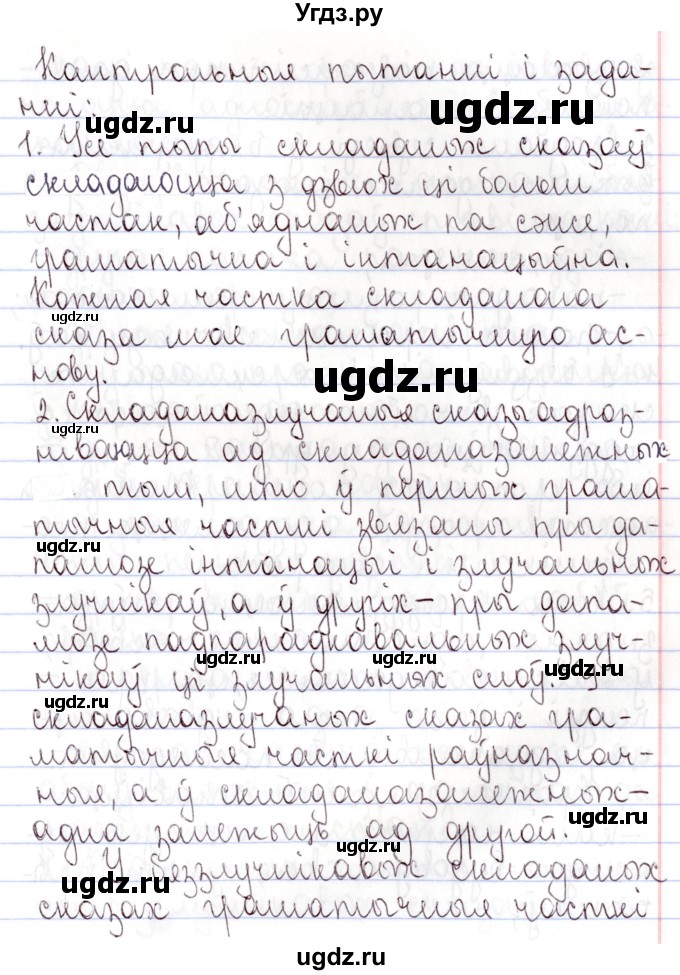 Угдз.ру
Кантрольныя пытанні і зада-
нні:
ugdz.ru
ugdz.ru
1. Усе тыпы складаных сказаў
складаюцца з дзвюх ці больш
частак, аб'яднаных па сэнсе,
граматычна і інтанацыйна.
Кожная частка складанага
ugdz.ru
сказа мае граматычную ас-
нову.
ugdz.ru
2. Складаназлучаныя сказы адроз-
ugdz.ru
ніваюцца ад складаназалежных
тым, што ў першых грама-
тычныя часткі звязаны пры да-
ugdz.ru
памозе інтанацыі і злучальных
злучнікаў, а ў другіх – пры дапа-
мозе падпарадкавальных злуч-
ugdz.ru
ugdz.ru
ugdz.ru
нікаў ці злучальных слоў. У
ugdz.ru
складаназлучаных сказах гра-
матычныя часткі раўназнач-
ныя, а ў складаназалежных –
ugdz.ru
адна залежыць ад другой.
У бяззлучнікавых складаных
ugdz.ru
ugdz.ru
сказах граматычныя часткі
ugdz.ru